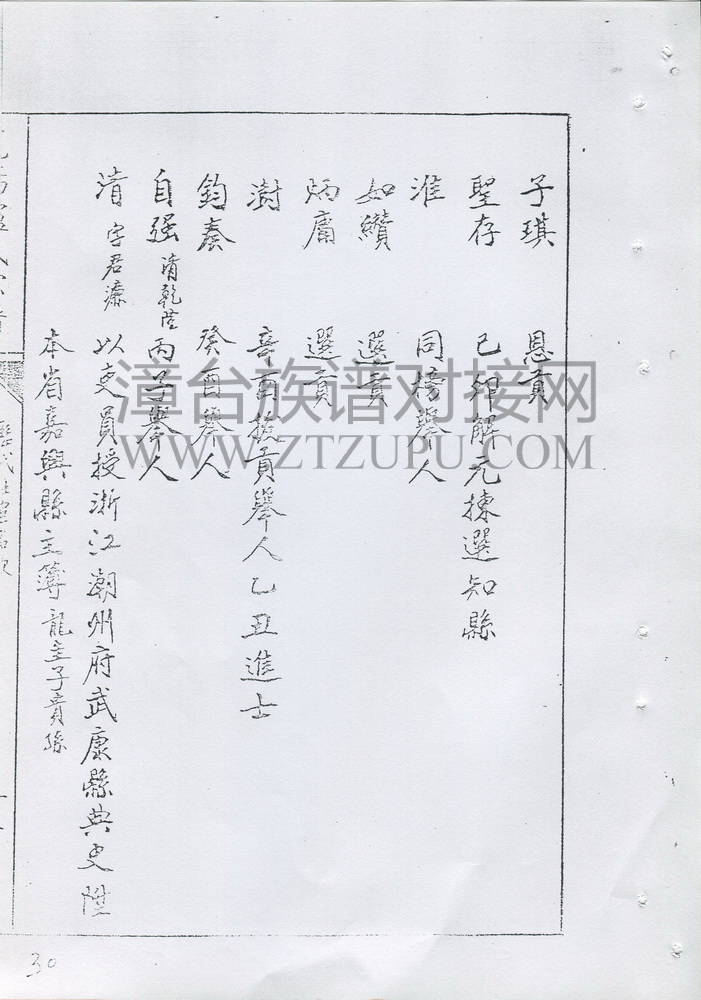 子琪 恩貢
聖存 己卯解元揀選知縣
淮 同榜舉人
如纘 選貢
炳庸 選貢
澍 辛酉拔貢舉人乙丑進士
鈞奏 癸酉舉人
自强 清乾隆丙子舉人
清 字君 以吏員授浙江潮州府武康縣典史陞
本省嘉興縣主簿龍 子
漳台族谱对接网
WWW.ZTZUPU.COM
30